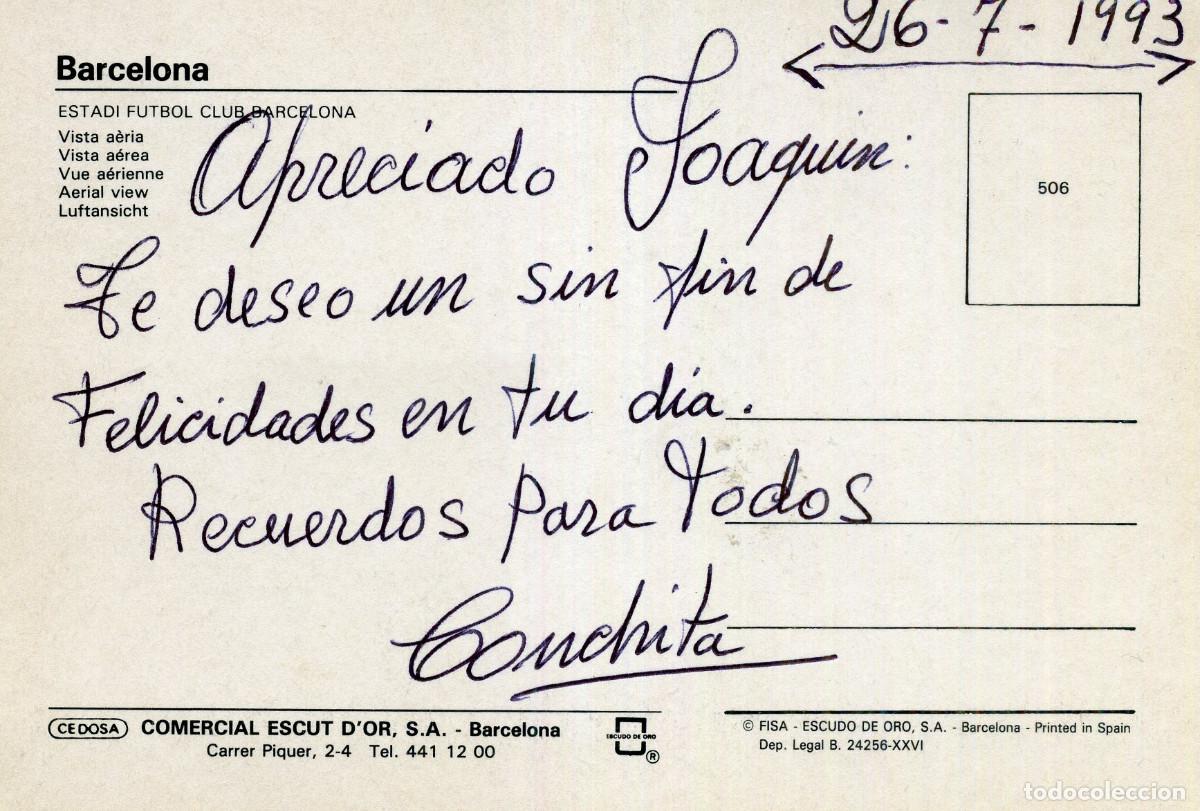 26-7-1993
Barcelona
ESTADI FUTBOL CLUB BARCELONA
Vista aèria
Vista aérea
Vue aérienne
Aerial view
Luftansicht
506
Apreciado Joaquin:
Te deseo un sin fin de
Felicidades en tu día.
Recuerdos para Todos
Conchita
CEDOSA COMERCIAL ESCUT D'OR, S.A. - Barcelona
Carrer Piquer, 2-4 Tel. 441 12 00
ESCUDO DE ORO
®
© FISA - ESCUDO DE ORO, S.A. - Barcelona - Printed in Spain
Dep. Legal B. 24256-XXVI
todocoleccion